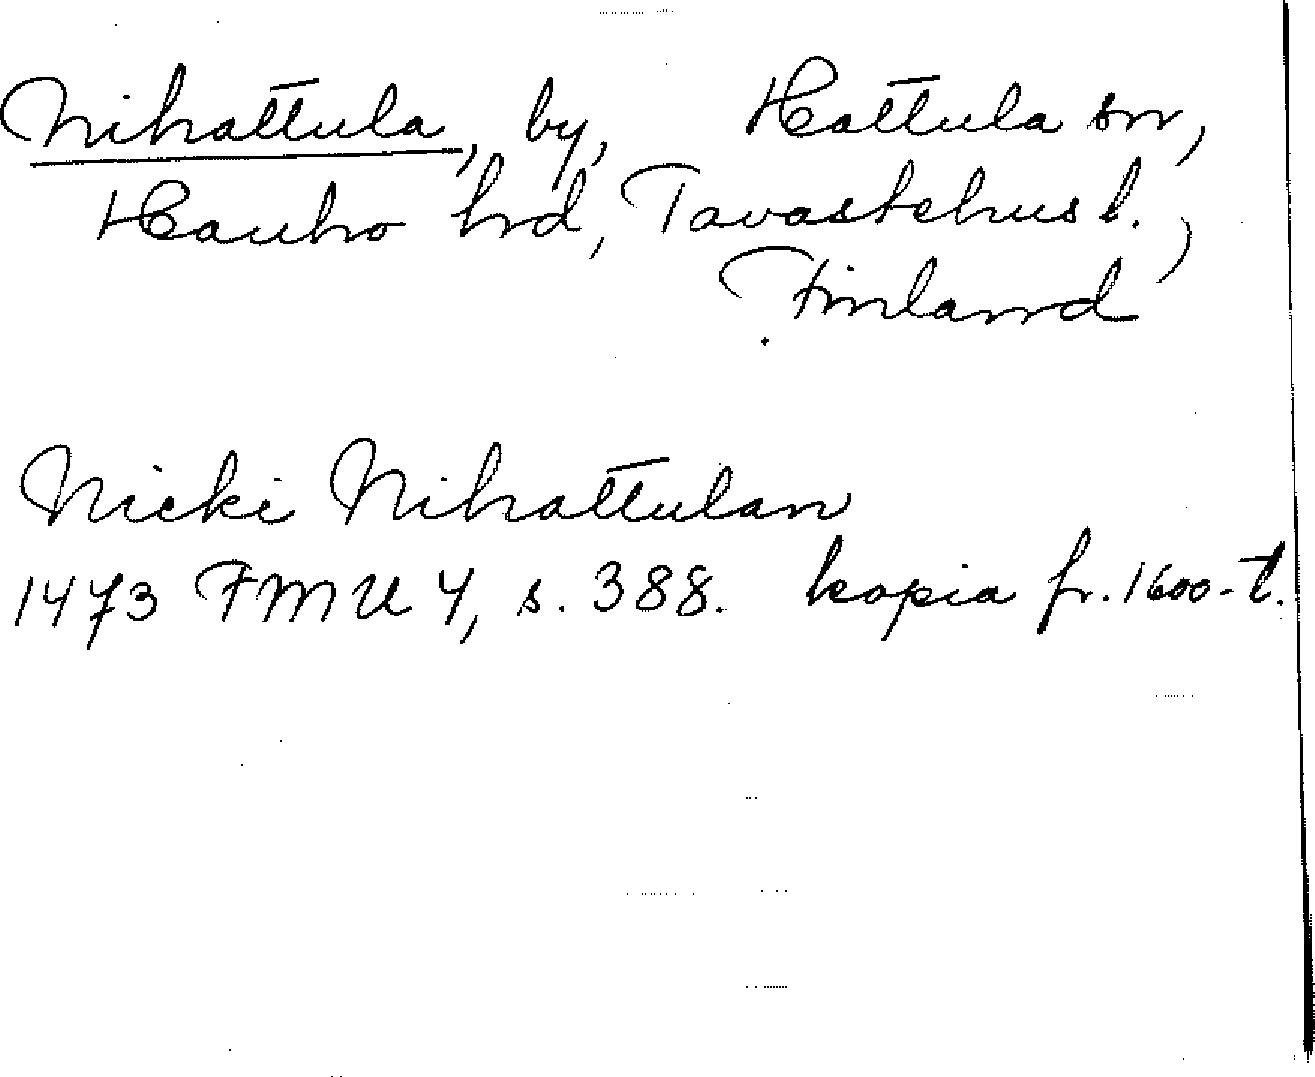 Nihattula, by, Hattula sn,
Hauho hrd, Tavastehus l.,
Finland
Nicki Nihattulan
1473 FMU 4, s. 388. kopia fr. 1600-t.